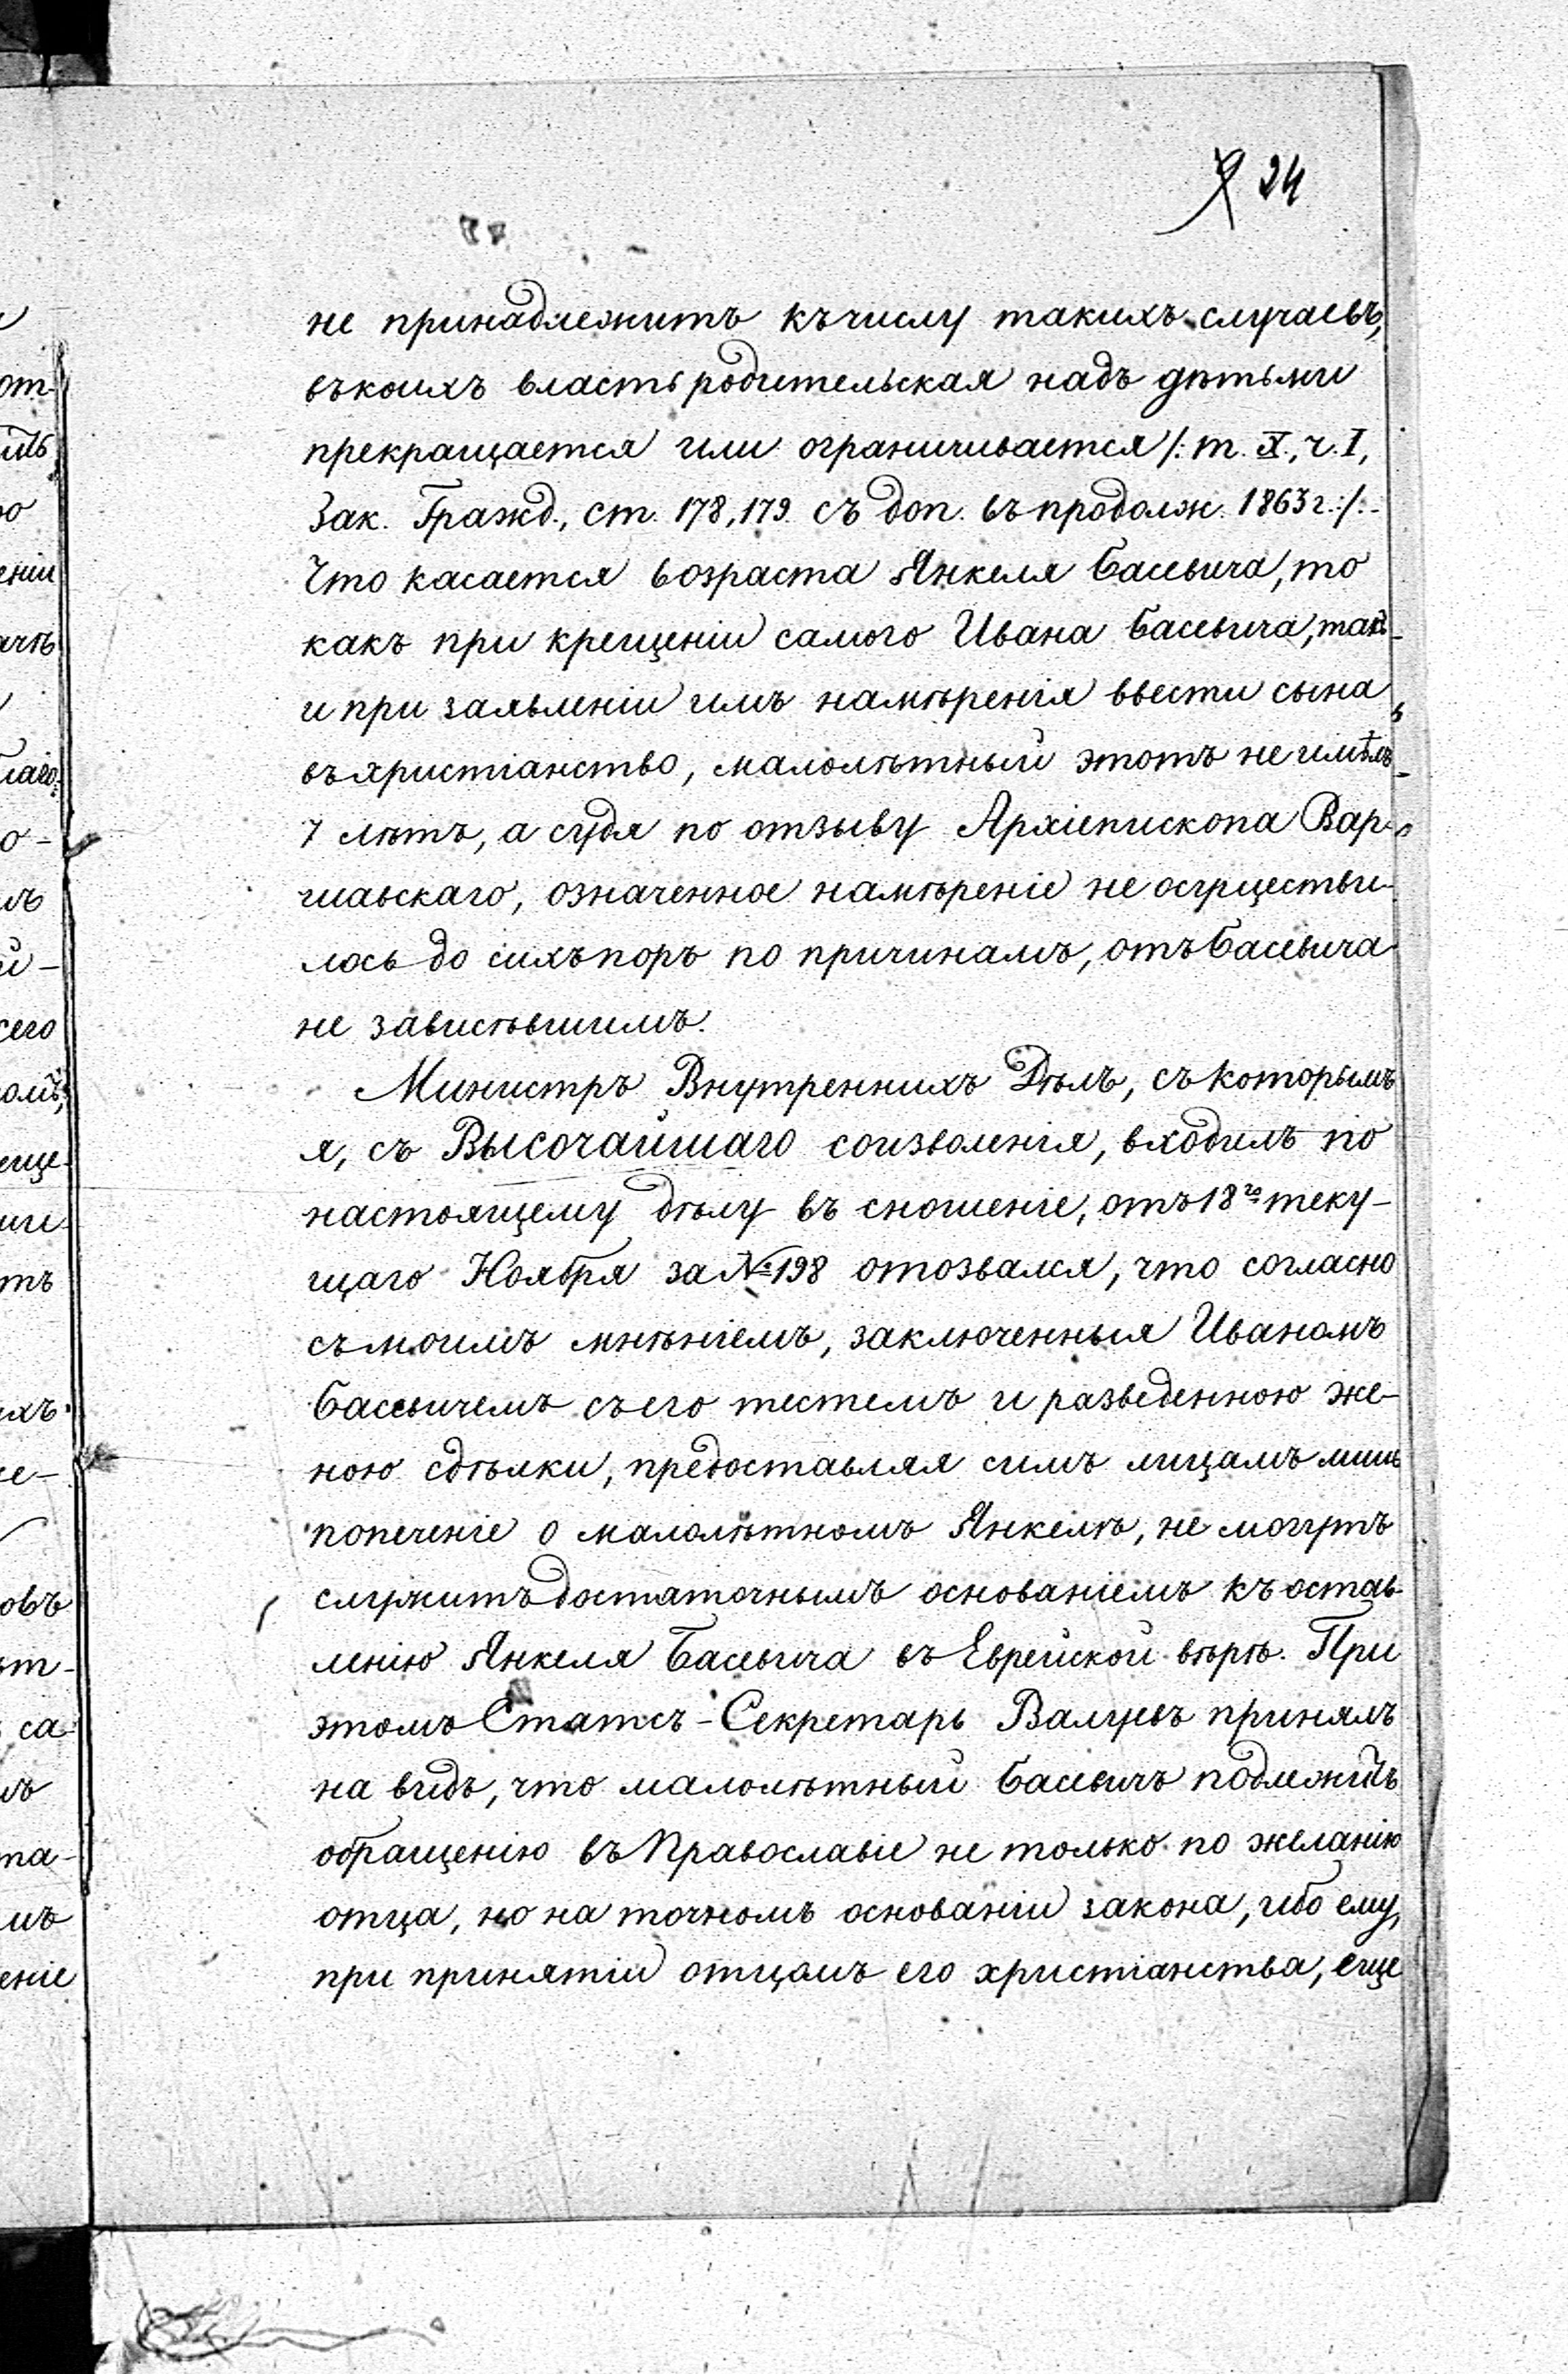 9 24
не принадлежитъ къ числу такихъ случаевъ,
въ коихъ власть родительская надъ дѣтьми
прекращается или ограничивается /: т. X, ч. I,
Зак. Гражд., ст. 178, 179. съ доп. въ продолж. 1863 г.:/.-
Что касается возраста Янкеля Басевича, то
какъ при крещеніи самого Ивана Басевича, такъ
и при заявленіи имъ намѣренія ввести сына
въ христіанство, малолѣтный этотъ не имѣлъ
7 лѣтъ, а судя по отзыву Архіепископа Вар-
шавскаго, означенное намѣреніе не осуществи-
лось до сихъ поръ по причинамъ, отъ Басевича
не зависѣвшимъ.
Министръ Внутреннихъ Дѣлъ, съ которымъ
я, съ Высочайшаго соизволенія, входилъ по
настоящему дѣлу въ сношеніе, отъ 18го теку-
щаго Ноября за № 198 отозвался, что согласно
съ моимъ мнѣніемъ, заключенныя Иваномъ
Басевичемъ съ его тестемъ и разведенною же-
ною сдѣлки, предоставляя симъ лицамъ лишь
попеченіе о малолѣтномъ Янкелѣ, не могутъ
служить достаточнымъ основаніемъ къ остав-
ленію Янкеля Басевича въ Еврейской вѣрѣ. При
этомъ Статсъ-Секретарь Валуевъ принялъ
на видъ, что малолѣтный Басевичъ подлежитъ
обращенію въ Православіе не только по желанію
отца, но на точномъ основаніи закона, ибо ему,
при принятіи отцомъ его христіанства, еще